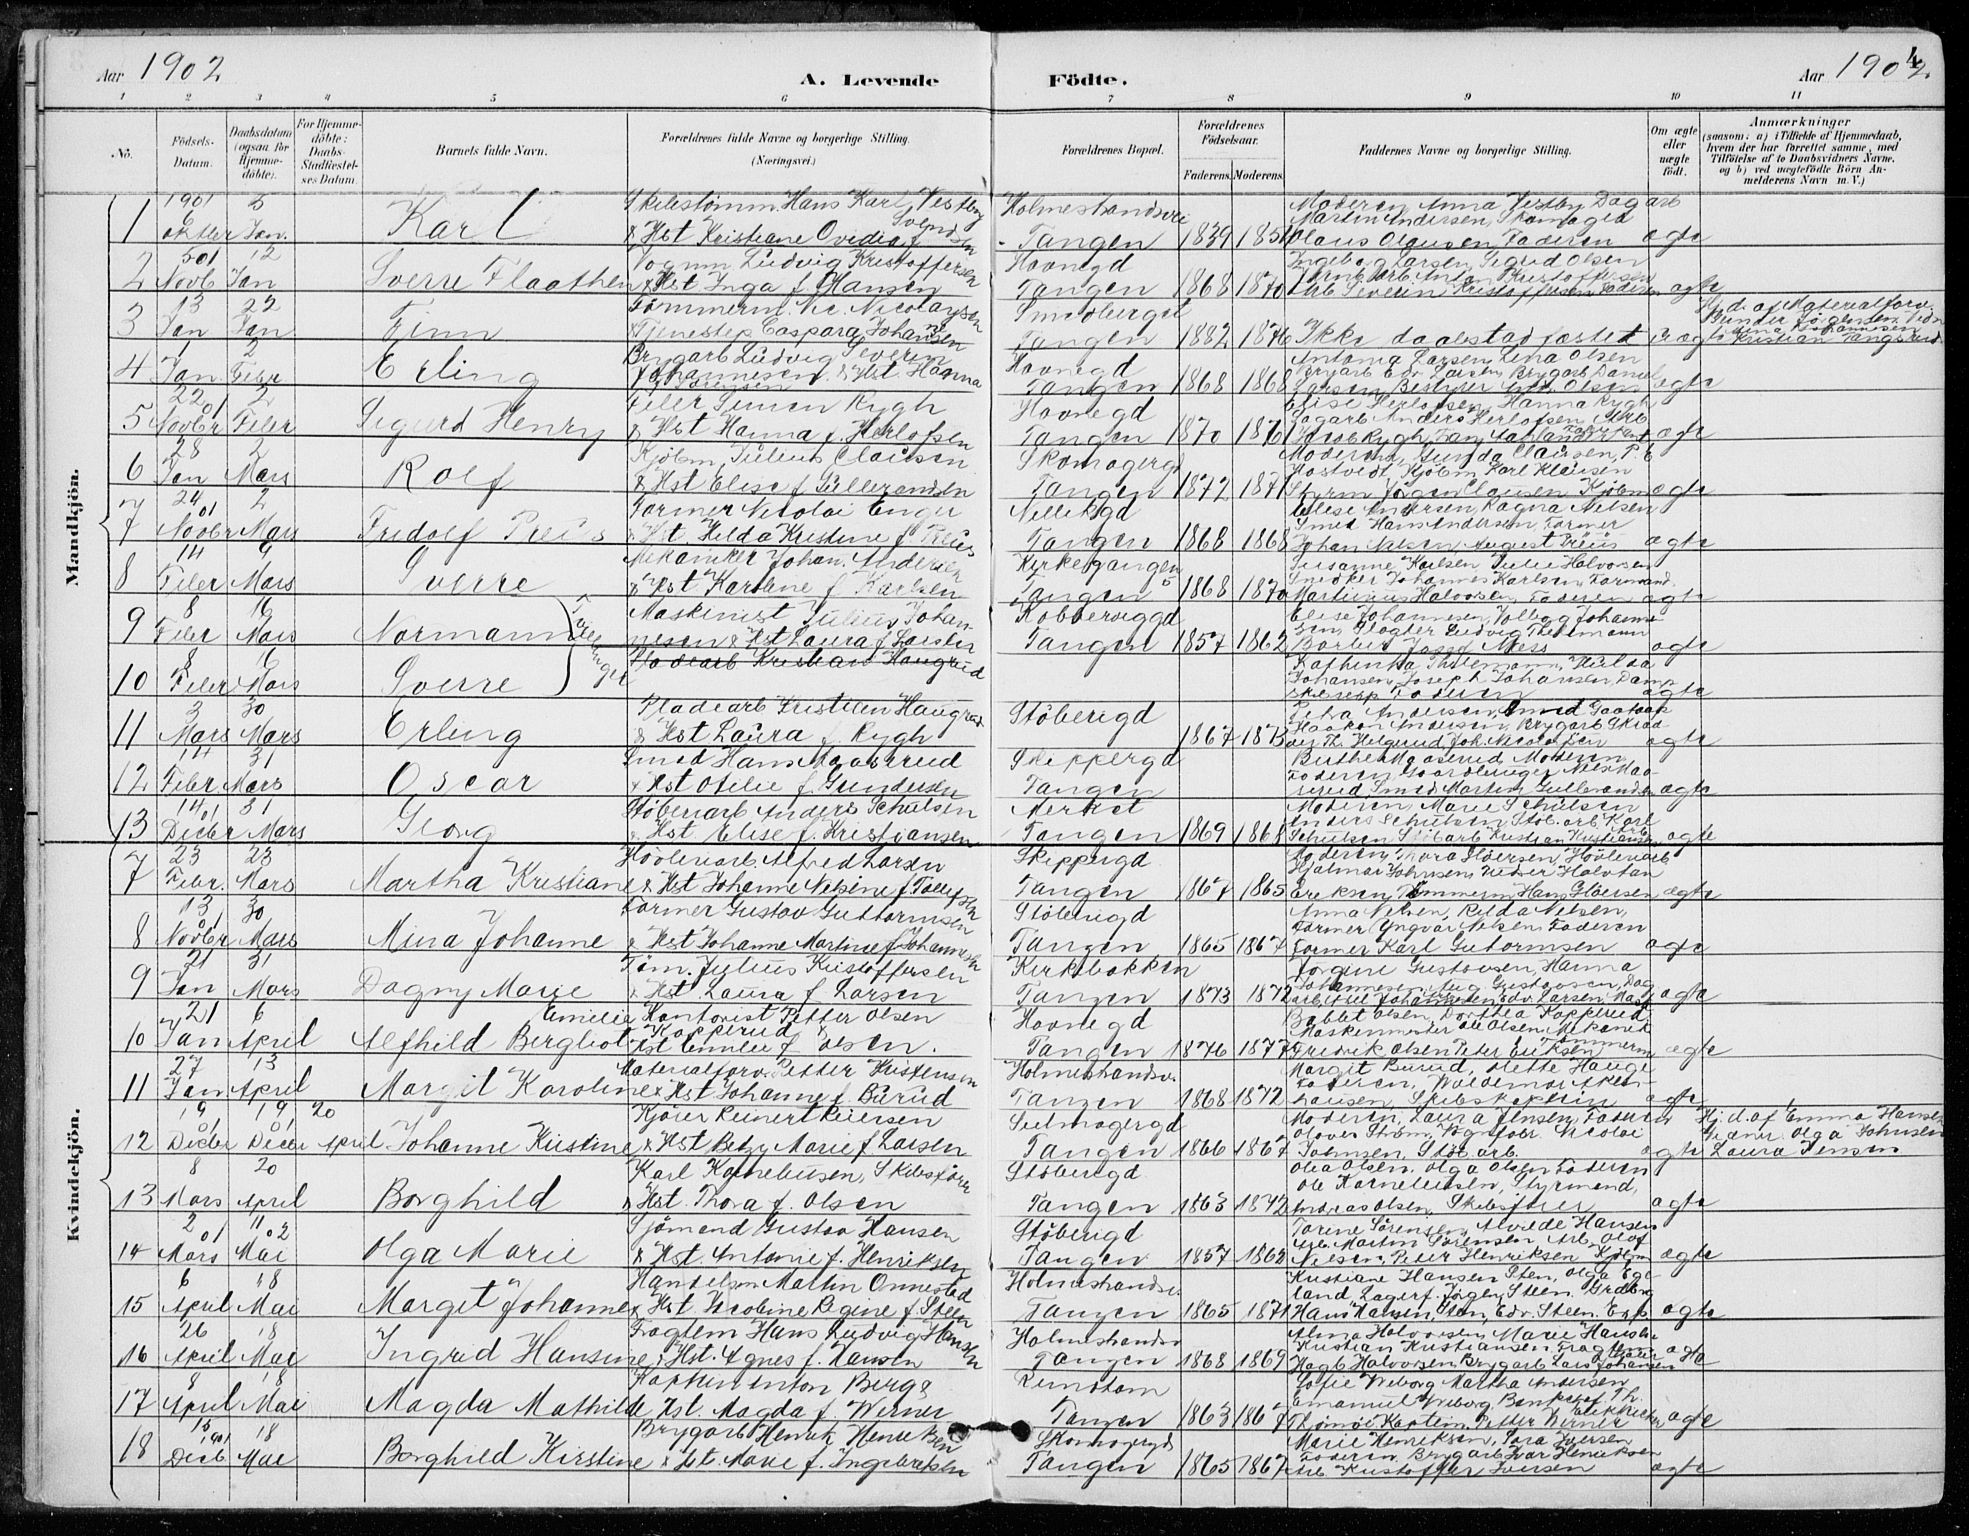 Aar 1902
A. Levende Födte.
Aar 1902
4
1 2 3 4 5 6 7 8 9 10 11
No.
Födsels-Datum.
Daabsdatum (ogsaa for Hjemmedöbte).
For Hjemmedöbte: Daabs-Stadfæstelses Datum.
Barnets fulde Navn.
Forældrenes fulde Navne og borgerlige Stilling. (Næringsvei.)
Forældrenes Bopæl.
Forældrenes Födselsaar.
Faderens. Moderens.
Faddernes Navne og borgerlige Stilling.
Om ægte eller uægte födt.
Anmærkninger
(saasom: a) i Tilfælde af Hjemmedaab, hvem der har forrettet samme, med Tilföielse af to Daabsvidners Navne. og b) ved uægtefödte Börn Anmelderens Navn m. V.)
Mandkjön.
1 1901 6 Oktber 5 Jan. Karl
Skibstömm. Hans Karl Vestby
& Hst Kristiane Ovedia f. Svendsen
Holmestrandsvei Tangen 1839
Moderen Anna Vestby Dagarb
Martin Andersen, Skomager
Olaus Olausen Faderen ægte
2 5 01 Novb 12 Jan Sverre Flaathen
Vognm. Ludvig Kristoffersen
& Hst Inga f. Hansen
Havnegd Tangen 1868 1870
Ingeborg Larsen, Sigrid Olsen
Anton Kristoffersen
Arb Severin Kristoffersen Faderen ægte
3 13 Jan 22 Jan Finn
Tömmerm. Nic. Nicolaysen
& Tjenestep Caspara Johansen
Smedbergd Tangen 1882 1876
Ikke daabstadfæstet uægte
Hj. d. af Materialforv.
Kristian Tangsrud
4 1 Jan 2 Febr Erling
Brygarb Ludvig Severin
Johannesen & Hst. Hanna
Sörensen
Havnegd Tangen 1868 1868
Antonia Larsen, Lina Olsen
Brygarb Edv. Larsen, Brygarb Daniel
Larsen, Bestyrer Olsen ægte
5 22 01 Novbr 2 Feber Sigurd Henry
Filer Simen Rygh
& Hst Hanna f. Herlofsen
Havnegd Tangen 1870 1876
Elise Herlofsen, Hanna Rygh
Sagarb Anders Herlofsen, Arb
Jacob Rygh ægte
6 28 Jan 2 Mars Rolf
Kjölm. Julius Clausen
& Hst Elise f. Gulbrandsen
Skomagergd Tangen 1872 1871
Moderen, Gunda Clausen,
Hostvedt Kjölm Karl Klausen
Styrm Jörgen Clausen Kjölm ægte
7 24 01 Novbr 2 Mars Fridolf Preus
Former Nicolai Enger
& Hst. Hilda Kristine f. Preus
Nellikgd Tangen 1868 1868
Elise Andersen, Ragna Nilsen
Smed Hans Andersen Former
Johan Nilsen, August Preus ægte
8 14 Feber 9 Mars Sverre
Mekaniker Johan Andersen
& Hst Karoline f. Karlsen
Kirkegangen 5 Tangen 1868 1870
Susanne Karlsen, Julie Halvorsen
Snedker Johannes Karlsen, Formand
Martinius Halvorsen, Faderen ægte
9 8 Feber 16 Mars Normann
Tvillinger
Maskinist Julius Johannesen
& Hst Laura f. Larsen
Kobbervikgd Tangen 1857 1862
Elise Johannesen, Valborg Johannesen
Slagter Ludvig Thelemann
Barber Josef Ness ægte
10 8 Feber Mars Sverre
Pladearb Kristian Haugrud
Kathinka Thelemann, Hulda
Johansen, Joseph Johansen, Damp
Faderen ægte
11 3 Mars 30 Mars Erling
Pladearb Kristian Haugrud
& Hst Laura f. Rygh
Stöberigd 1867 1873
Petra Andersen,
Haakon Andersen, Brygarb
Th. Helgerud, Joh. Nicolaisen ægte
12 14 Feber 31 Mars Oscar
Smed Hans Maaserud
& Hst Otilie f. Gundersen
Skippergd Tangen
Berthe Maaserud Moderen
Faderen, Gaardbruger Nils Maaserud
Smed Martin Gulbrandsen ægte
13 14 01 Decbr 31 Mars Georg
Stöberiarb Anders Schulsen
& Hst Elise f. Kristiansen
Verket Tangen 1869 1868
Moderen Marie Schulsen
Anders Schulsen, Stöb. arb Karl
Schulsen, Stöb arb Kristian Kristiansen ægte
Kvindekjön.
7 23 Febr. 23 Mars Martha Kristiane
Hövleriarb. Alfred Larsen
& Hst Johanne Nilsine f. Tollefsen
Skippergd Tangen 1867 1865
Moderen, Thora Gloersen, Hövleriarb
Hjalmar Johnsen, Halvdan
Eriksen, Tömmerm Hans Gloersen ægte
8 13 01 Novbr 30 Mars Mina Johanne
Former Gustav Guttormsen
& Hst Johanne Martine f. Johannesen
Stöberigd Tangen 1865 1867
Anna Nilsen, Hilda Nilsen,
Former Yngvar Nilsen, Faderen
Former Karl Gutormsen ægte
9 21 Jan 31 Mars Dagny Marie
Töm. Julius Kristoffersen
& Hst. Laura f. Larsen
Kirkebakken Tangen 1873 1872
Jörgine Gustavsen, Hanna
Johannesen, Aug Gustavsen, Dagarb
Johannesen, Edv. Larsen, ægte
10 21 Jan 6 April Alfhild Bergliot Emilie
Kontorist Petter Olsen
Kopperud &
Hst Emilie f. Olsen.
Havnegd Tangen 1876 1877
Babbet Olsen, Dorthea Kopperud
Maskinmester Ole Olsen, Mekanik
Fredrik Olsen, Peter Eriksen Tömmerm ægte
11 27 Jan 13 April Margit Karoline
Materialforv. Petter Kristensen
& Hst Johanne f. Burud
Holmestrandsv. Tangen 1868 1872
Margit Burud, Mette Hauge
Faderen, Waldemar
Skibskaptein ægte
12 19 01 Decbr 19 01 Decbr 20 April Johanne Kristine
Kjörer Reinert Reiersen
& Hst Betzy Marie f. Larsen
Seilmagergd Tangen 1866 1867
Moderen, Laura Jensen, Faderen
Olaves Ström, Vognfabr. Nicolai
Johnsen, Stöb arb. ægte
Hj. d. af Emma Hansen
Vidner Olga Johnsen
Laura Jensen
13 8 Mars 20 April Borghild
Karl Kornelieusen, Skibsförer
& Hst. Thora f. Olsen
Stöberigd Tangen 1863 1872
Olia Olsen, Olga Olsen Faderen
Ole Korneliusen, Styrmand,
Andreas Olsen, Skibsförer ægte
14 2 01 Mars 11 02 Mai Olga Marie
Sjömand Gustav Hansen
& Hst. Antonie f. Henriksen
Stöberigd Tangen 1857 1862
Torine Sörensen, Alvilde Hansen
Arb. Martin Sörensen Arb. Olof
Nilsen, Peter Henriksen Kjölm ægte
15 6 April 18 Mai Margit Johanne
Handelsm Martin Onnestad
& Hst. Jacobine Regine f. Steen
Holmestrandsv. Tangen 1865 1871
Kristiane Hansen Sten, Olga Ege
land Lagerf. Jörgen Steen.
Hans Hansen Sten, Edv. Steen. ægte
16 26 April 18 Mai Ingrid Hansine
Fragtem Hans Ludvig Hansen
& Hst. Agnes f. Hansen
Holmestrandsv Tangen 1868 1869
Alma Halvorsen, Marie Hansen
Kristian Kristiansen Fragtem
Hagb Halvorsen Brygarb Lars Johansen ægte
17 8 April 18 Mai Magda Mathilde
Kaptein Anton Berg &
Hst. Magda f. Werner
Tangen 1863 1867
Sofie Weborg Martha Andersen
Emanuel Weborg, Th.
Kaptein Petter Werner ægte
18 15 1901 Decb 18 Mai Borghild Kirstine
Brygarb Henrik Henriksen
& Hst. Marie f. Ingebretsen
Skomagergd Tangen 1865 1867
Marie Henriksen, Sara Iversen
Faderen Brygarb Ivar Henriksen
Arb Kristoffer Iversen ægte